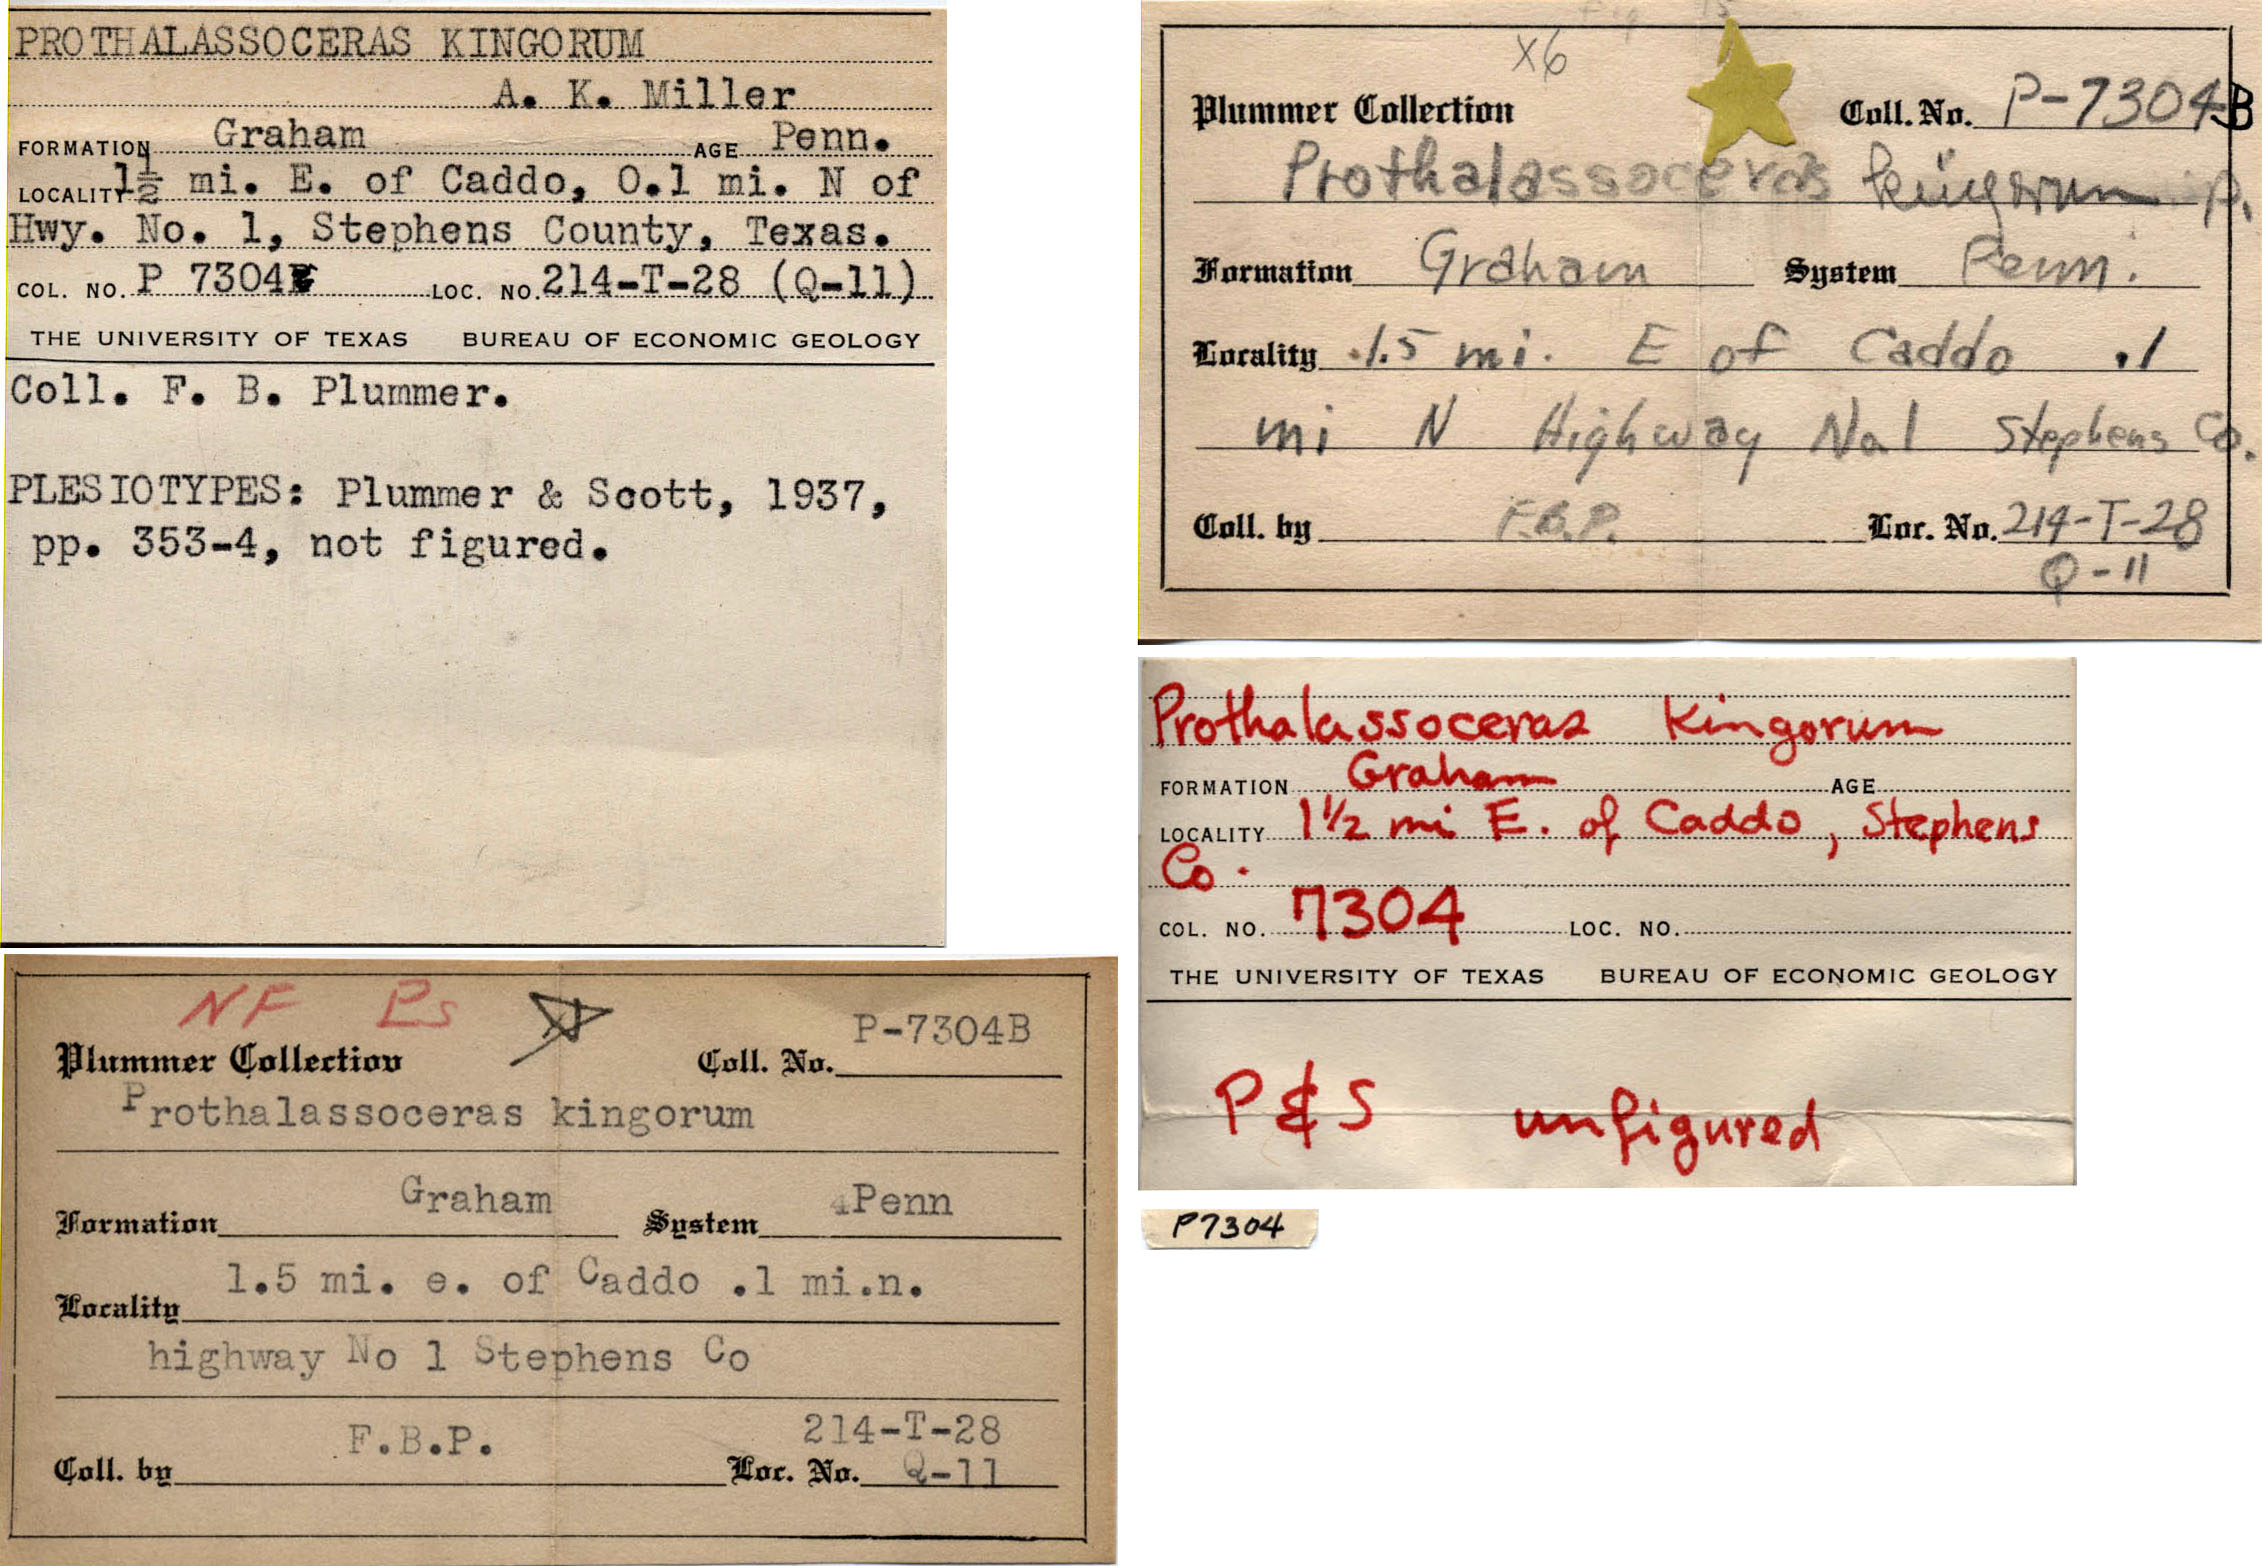 PROTHALASSOCERAS KINGORUM
A. K. Miller
FORMATION Graham AGE Penn.
LOCALITY 1½ mi. E. of Caddo, 0.1 mi. N of
Hwy. No. 1, Stephens County, Texas.
COL. NO. P 7304 LOC. NO. 214-T-28 (Q-11)
THE UNIVERSITY OF TEXAS BUREAU OF ECONOMIC GEOLOGY
Coll. F. B. Plummer.
PLESIOTYPES: Plummer & Scott, 1937,
pp. 353-4, not figured.
NF Ps
Plummer Collection Coll. No. P-7304B
Prothalassoceras kingorum
Formation Graham System Penn
Locality 1.5 mi. e. of Caddo .1 mi.n.
highway No 1 Stephens Co
Coll. by F.B.P. Loc. No. 214-T-28
Q-11
x6
Plummer Collection Coll. No. P-7304B
Prothalassoceras kingorum p.
Formation Graham System Penn.
Locality 1.5 mi. E of Caddo .1
mi N Highway No 1 Stephens Co.
Coll. by F.B.P. Loc. No. 214-T-28
Q-11
Prothalassoceras kingorum
FORMATION Graham AGE
LOCALITY 1½ mi E. of Caddo, Stephens
Co.
COL. NO. 7304 LOC. NO.
THE UNIVERSITY OF TEXAS BUREAU OF ECONOMIC GEOLOGY
P & S unfigured
P7304